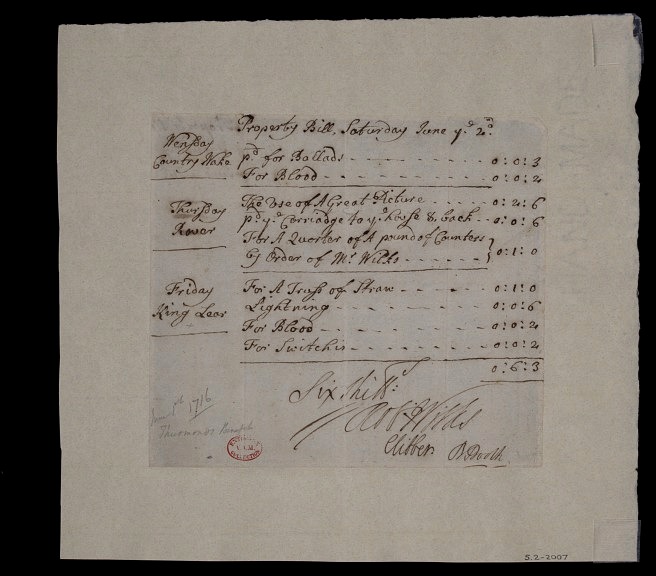 Property Bill, Saturday June yᵉ 2ᵈ
Wensday
Country Wake
pᵈ for Ballads - - - 0 : 0 : 3
For Blood - - - 0 : 0 : 2
Thursday
Rover
The Use of A Great Picture - - - 0 : 2 : 6
pᵈ yᵉ Carriadge to yᵉ house & back - - 0 : 0 : 6
For A Quarter of A pound of Counters
By Order of Mʳ Wilks - - - 0 : 1 : 0
Friday
King Lear
For A Truss of Straw - - - 0 : 1 : 0
Lightning - - - 0 : 0 : 6
For Blood - - - 0 : 0 : 2
For Switchis - - - 0 : 0 : 2
0 : 6 : 3
Six shillˢ:
Rob Wilks
CCibber BBooth
1716
S.2-2007